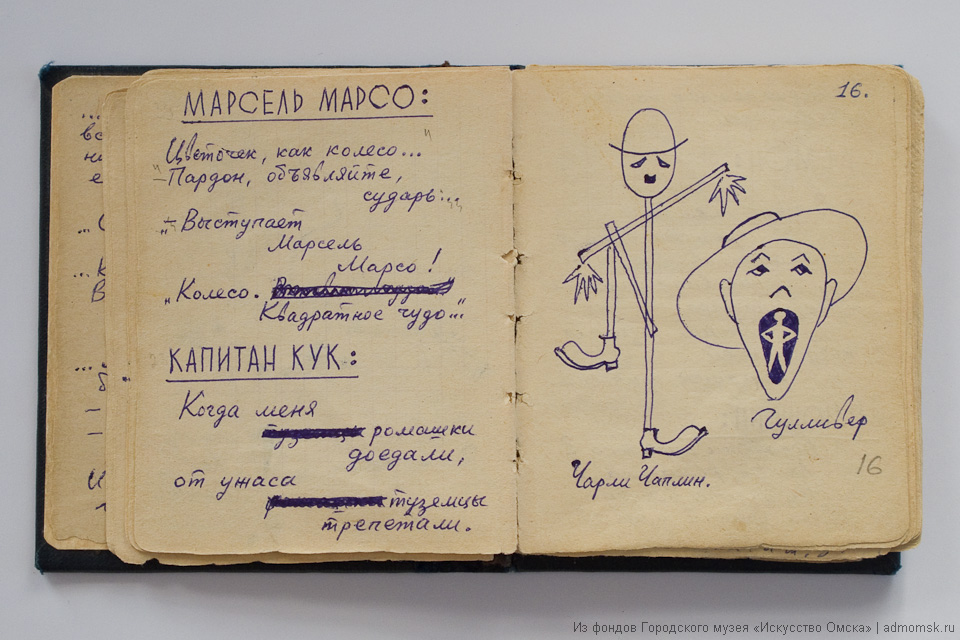 МАРСЕЛЬ МАРСО:
Цветочек, как колесо..."
"—Пардон, объявляйте,
сударь..."
"—Выступает
Марсель
Марсо!
"Колесо.
Квадратное чудо..."
КАПИТАН КУК:
Когда меня
ромашки
доедали,
от ужаса
туземцы
трепетали.
16.
Гулливер
16
Чарли Чаплин.
Из фондов Городского музея «Искусство Омска» | admomsk.ru